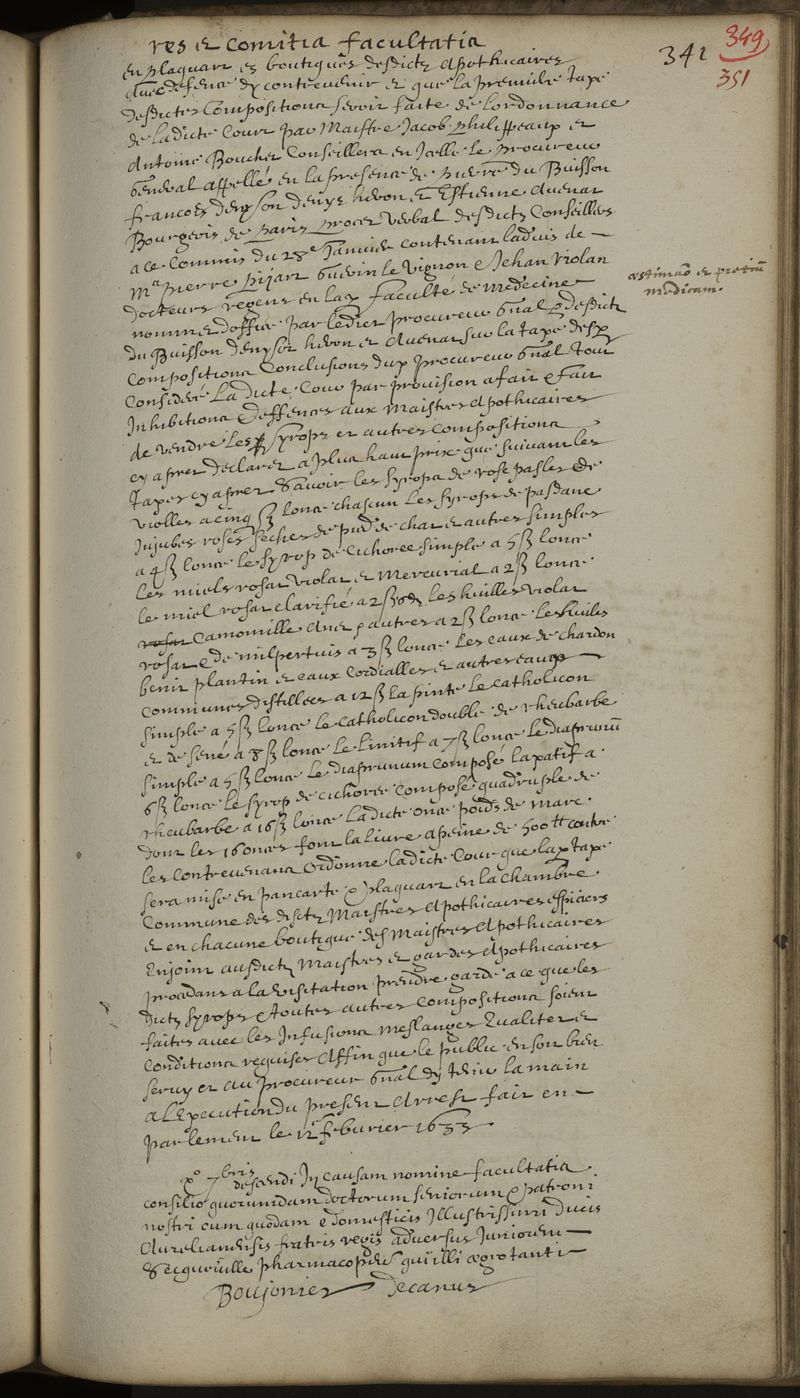 res et comitia facultatis
341
349
351
en plaquart es boutiques desdictz Apothicaires
Avec defence dy contrevenir et que la premiere taxe
desdictes Compositions seroit faite de lordonnance
de ladicte Cour par Maistre Jacob Philippeaux et
Antoine Boucher Conseillers en Icelle le procureur
general appellé en la presence de Pierre du Buisson
francois denyson denys heron et Estienne Avenar
Bourgeois de Paris procez verbal desdictz Conseillers
a ce Commis du 28e Janvier contenant ladvis de
Me Pierre Pijart Guerin le Vignon e Jehan Riolan
docteurs regens en lax faculté de Medecine
nommez doffice par ledict procureur gnal desdictz
du Buisson denyson heron et Avenar sur la taxe desx
Compositions Conclusions dux procureur gnal tout
Consideré La dicte Cour par provision a fait e fait
Inhibitions e deffences aux Maistres Apothicaires
de vendre les syrops et autres compositions
cy apres declarez a plus hault prix que suivant les
taxes cy apres Savoir les syrops de rose pasles e de
violles a cinq ß lonce chascun Les syrops de pasdane
Jujubes roses seches de pied de chat e autres simples
a 4 ß lonce le syrop de cichoree simple a 5 ß lonce
Les miels rosat violat e Mercurial a 2 ß lonce
le miel rosat clarifié a 2 ß 6 d les huilles violat
rosat Camomille Anet e autres a 2 ß lonce les huiles
rosat e de milpertuis a 3 ß lonce Les eaux de chardon
benit plantin e eaux Cordialles e autres eaux
communes distillees a 12 ß la pinte le Catholicon
simple a 5 ß lonce le Catholicon double de rheubarbe
e de sené a 8 ß lonce le linitif a 7 ß lonce le diaprunum
simple a 5 ß lonce Le diaprunum composé laxatif a
6 ß lonce le syrop de cichoree composé quadruple de
rheubarbe a 16 ß lonce ladicte once poids de marc
dont les 16 onces font la livre a peine de 500 tt contre
les contrevenans ordonne ladicte Cour que lax taxe
sera mise en pancarte e plaquart en la chambre
Commune des dictz Maistres Apothicaires espiciers
e en chacune boutique des Maistres Apothicaires
Enjoint ausdictz Maistres e gardes Apothicaires
procedans a la visitation prendre garde a ce que les
dictz syrops e toutes autres compositions soient
faites avec les Infusions meslanges Qualitez e
Conditions requises Affin que le public en soit bien
servy et au procureur gnal dy tenir la main
a lExecution du present Arrest fait en
parlement le 12e feburier 1633.
æstimaõ et pretiũ
medicam.
Xo 7bris descendi In causam nomine facultatis
consilio quorumdam doctorum seniorum e patroni
nostri cum quodam e domesticis Illustrissimi Ducis
Aurelianensis fratris regis adversus Juniorem
Secqueville pharmacopœum qui illi ægrotanti
Boujonier Decanus